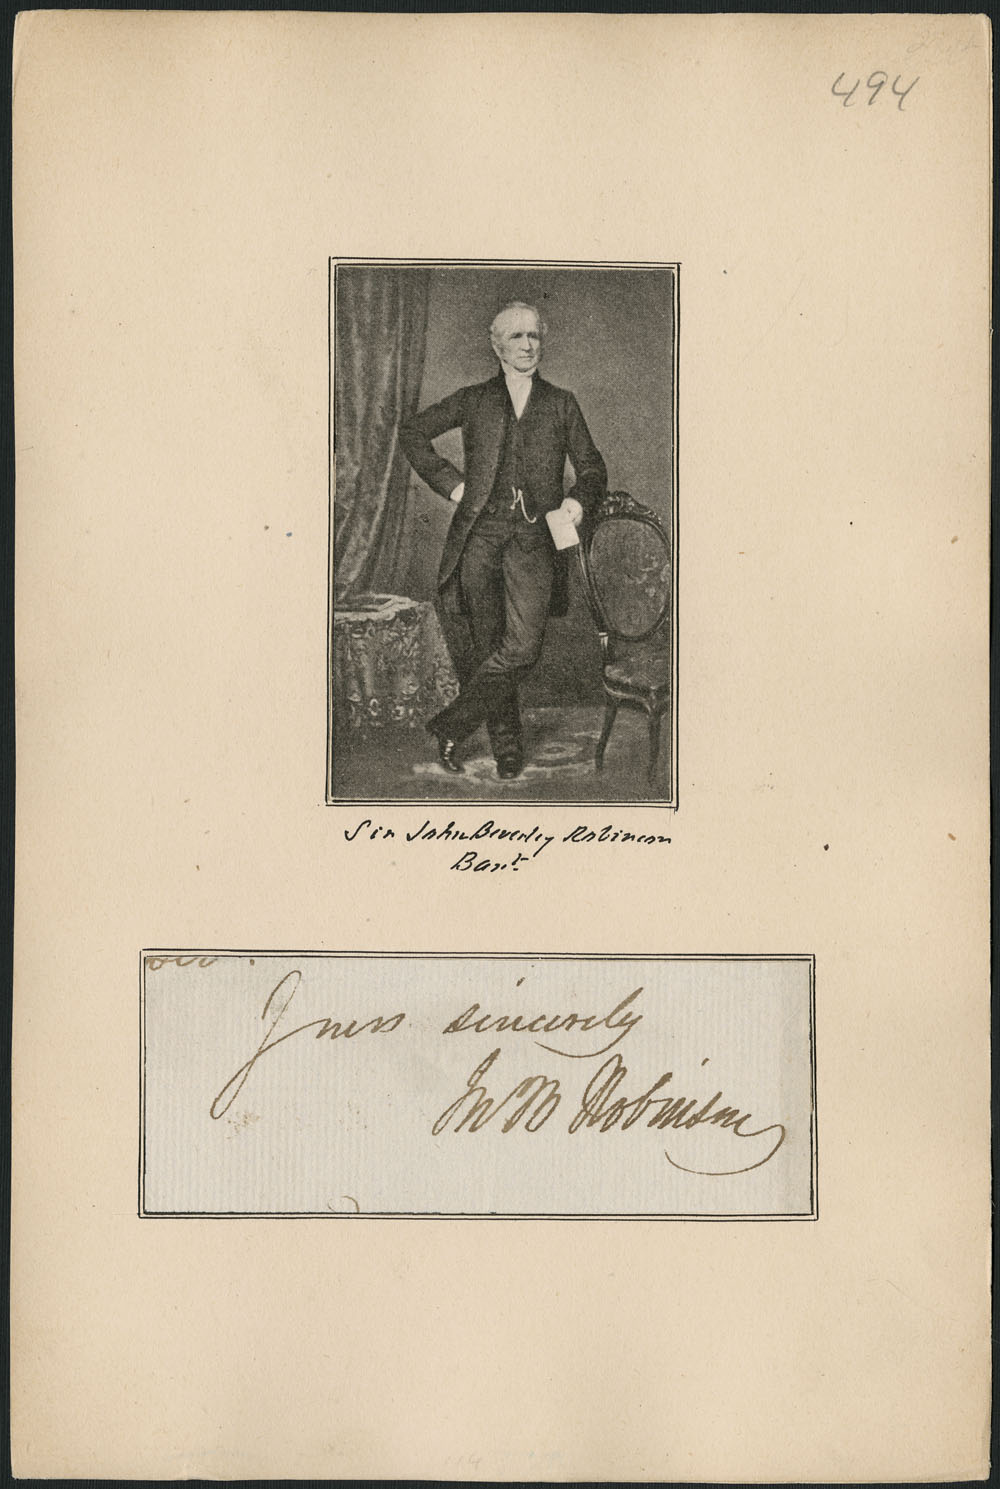 494
Sir John Beverley Robinson
Bart.
Yours sincerely
Jn B Robinson